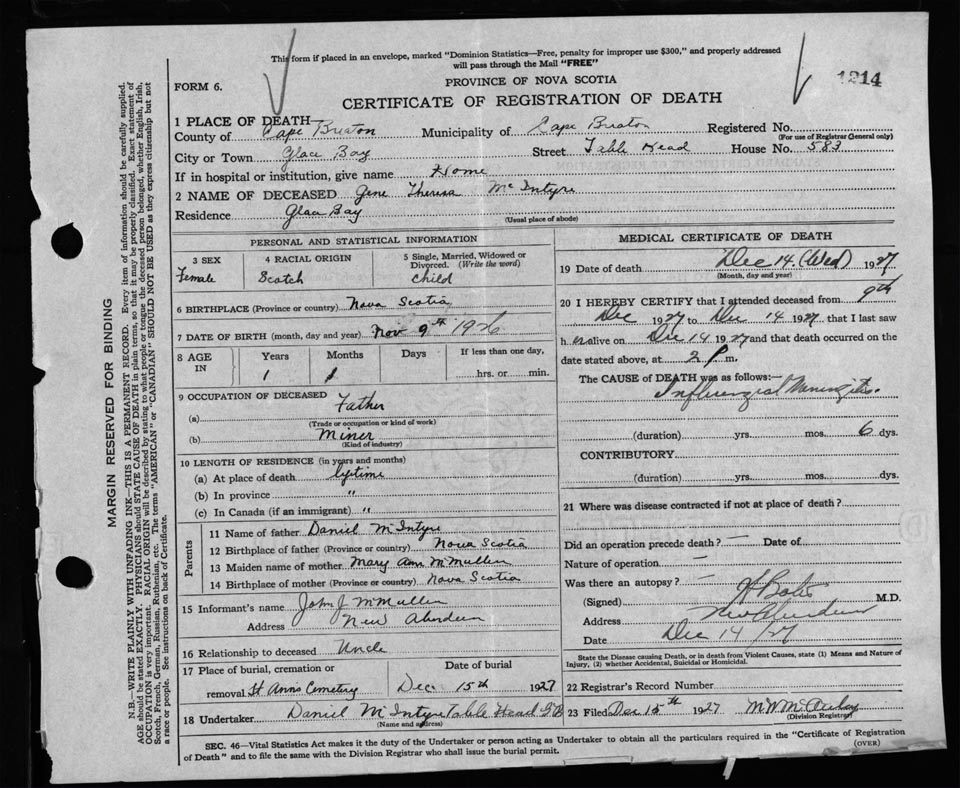 This form if placed in an envelope, marked "Dominion Statistics—Free, penalty for improper use $300," and properly addressed
will pass through the Mail "FREE"
1214
FORM 6.
PROVINCE OF NOVA SCOTIA
CERTIFICATE OF REGISTRATION OF DEATH
1 PLACE OF DEATH
County of Cape Breton Municipality of Cape Breton Registered No.
(For use of Registrar General only)
City or Town Glace Bay Street Table Head House No. 583
If in hospital or institution, give name Home
2 NAME OF DECEASED Gene Theresa McIntyre
Residence Glace Bay
(Usual place of abode)
PERSONAL AND STATISTICAL INFORMATION
3 SEX 4 RACIAL ORIGIN 5 Single, Married, Widowed or
Divorced. (Write the word)
Female Scotch Child
6 BIRTHPLACE (Province or country) Nova Scotia
7 DATE OF BIRTH (month, day and year) Nov 9th 1926
8 AGE IN Years Months Days If less than one day,
1 1 hrs. or min.
9 OCCUPATION OF DECEASED
(a) Father
(Trade or occupation or kind of work)
(b) Miner
(Kind of industry)
10 LENGTH OF RESIDENCE (in years and months)
(a) At place of death lifetime
(b) In province "
(c) In Canada (if an immigrant) "
Parents
11 Name of father Daniel McIntyre
12 Birthplace of father (Province or country) Nova Scotia
13 Maiden name of mother Mary Ann McMullen
14 Birthplace of mother (Province or country) Nova Scotia
15 Informant's name John J McMullen
Address New Aberdeen
16 Relationship to deceased Uncle
17 Place of burial, cremation or Date of burial
removal St Anns Cemetery Dec 15th 1927
18 Undertaker Daniel McIntyre Table Head G B
(Name and address)
MEDICAL CERTIFICATE OF DEATH
19 Date of death Dec 14. (Wed) 1927
(Month, day and year)
20 I HEREBY CERTIFY that I attended deceased from 9th
Dec 1927 to Dec 14 1927 that I last saw
h er alive on Dec 14 1927 and that death occurred on the
date stated above, at 2 P m.
The CAUSE of DEATH was as follows:—
Influenzial Meningitis.
(duration) yrs. mos. 6 dys.
CONTRIBUTORY
(duration) yrs. mos. dys.
21 Where was disease contracted if not at place of death?
Did an operation precede death? — Date of
Nature of operation —
Was there an autopsy? —
(Signed) M.D.
Address New Aberdeen
Date Dec 14 /27
State the Disease causing Death, or in death from Violent Causes, state (1) Means and Nature of
Injury, (2) whether Accidental, Suicidal or Homicidal.
22 Registrar's Record Number
23 Filed Dec 15th 1927
(Division Registrar)
SEC. 46—Vital Statistics Act makes it the duty of the Undertaker or person acting as Undertaker to obtain all the particulars required in the "Certificate of Registration
of Death" and to file the same with the Division Registrar who shall issue the burial permit.
(OVER)
MARGIN RESERVED FOR BINDING
N.B.—WRITE PLAINLY WITH UNFADING INK—THIS IS A PERMANENT RECORD. Every item of information should be carefully supplied.
AGE should be stated EXACTLY. PHYSICIANS should STATE CAUSE OF DEATH in plain terms, so that it may be properly classified. Exact statement of
OCCUPATION is very important. RACIAL ORIGIN will be described by stating to what people or tongue the deceased person belonged, whether English, Irish,
Scotch, French, German, Russian, Ruthenian, etc. The terms "AMERICAN" or "CANADIAN" SHOULD NOT BE USED as they express citizenship but not
a race or people. See instructions on back of Certificate.